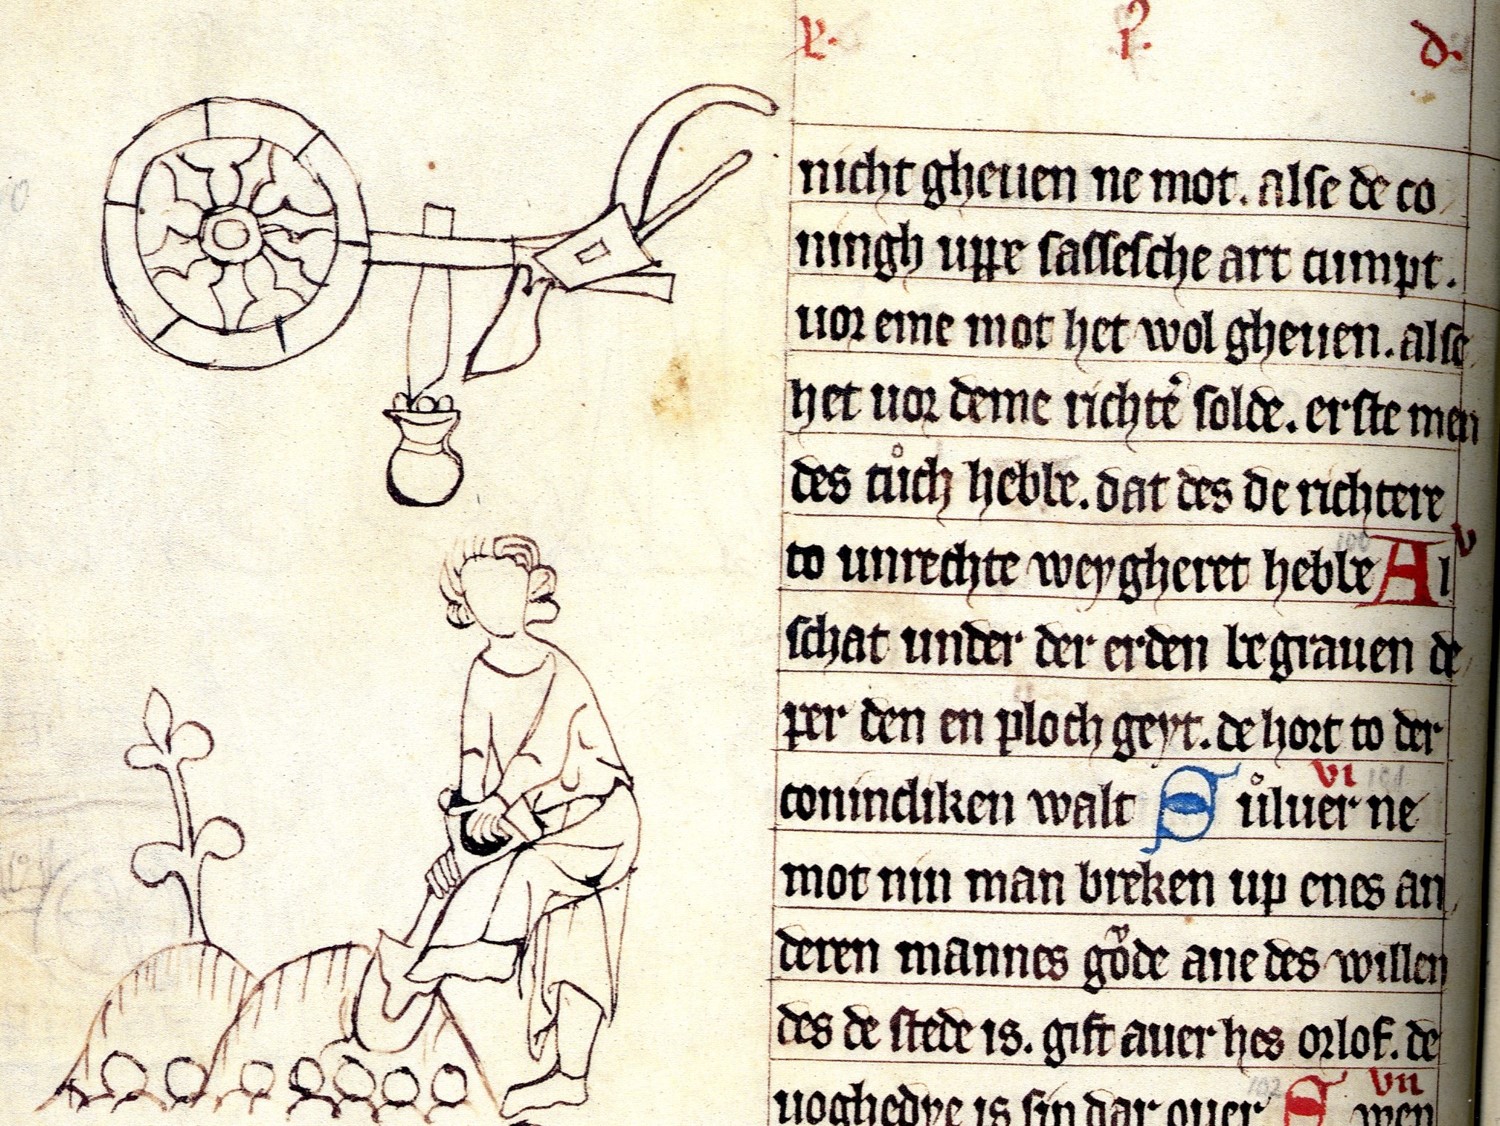 p. i. d.
nicht gheuen ne mot. alse de co
ningh uppe sassesche art cumpt.
uor eme mot het wol gheuen. alse
het uor deme richte᷒ solde. erste men
des tůch hebbe. dat des de richtere
to unrechte weygheret hebbe Al v
schat under der erden begrauen de
per den en ploch geyt. de hort to der
conincliken walt vi Sůluer ne
mot nin man breken up enes an
deren mannes gode ane des willen
des de stede is. gift auer hes orlof. de
uoghedye is sin dar ouer vii Swen